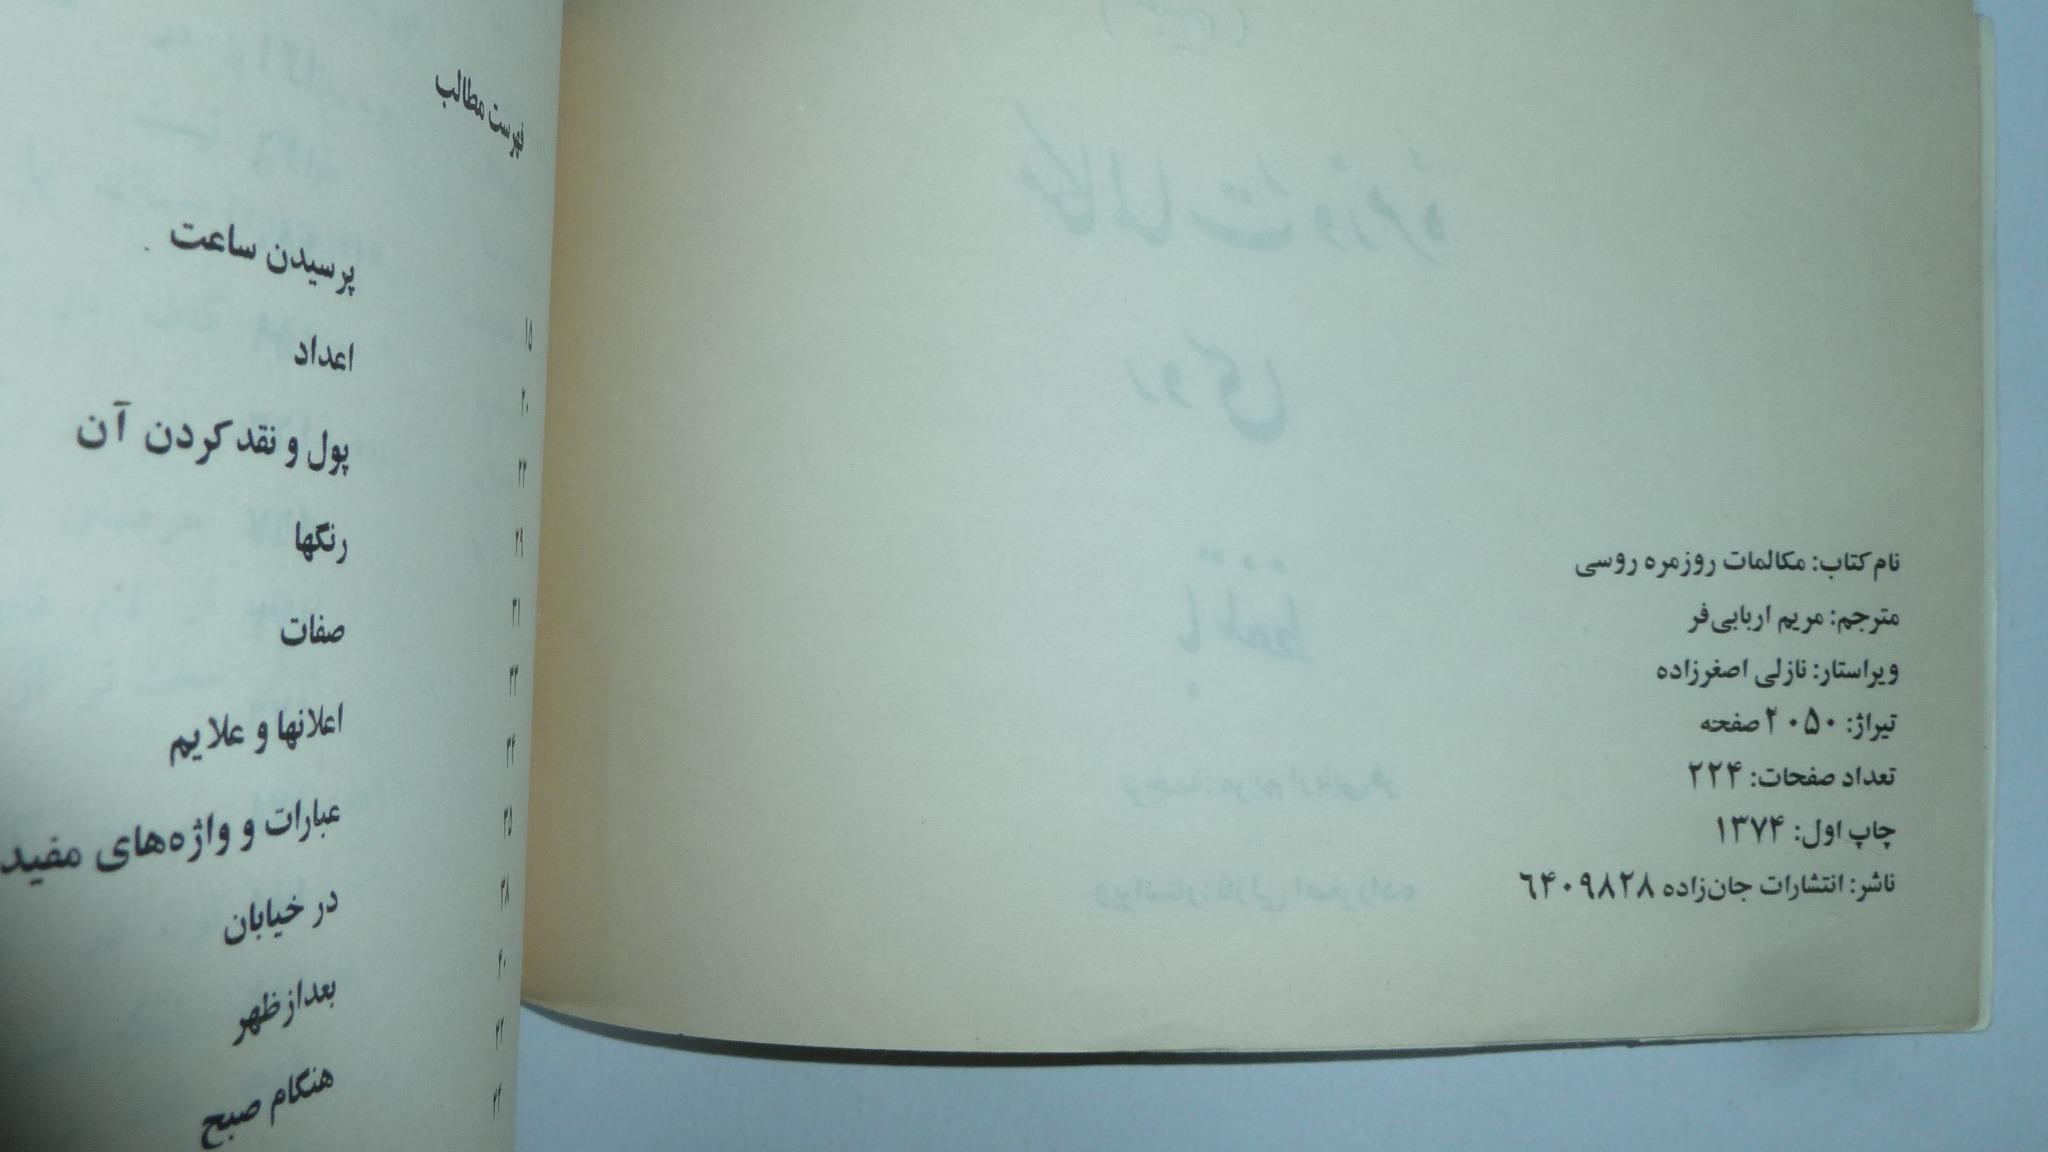 نام کتاب: مکالمات روزمره روسی
مترجم: مریم اربابی‌فر
ویراستار: نازلی اصغرزاده
تیراژ: ۲۰۵۰ صفحه
تعداد صفحات: ۲۲۴
چاپ اول: ۱۳۷۴
ناشر: انتشارات جان‌زاده ۶۴۰۹۸۲۸
فهرست مطالب
پرسیدن ساعت ۱۵
اعداد ۲۰
پول و نقد کردن آن ۲۳
رنگها ۲۹
صفات ۳۱
اعلانها و علایم ۳۳
عبارات و واژه‌های مفید ۳۴
در خیابان ۳۵
بعدازظهر ۳۸
هنگام صبح ۴۰
۴۲